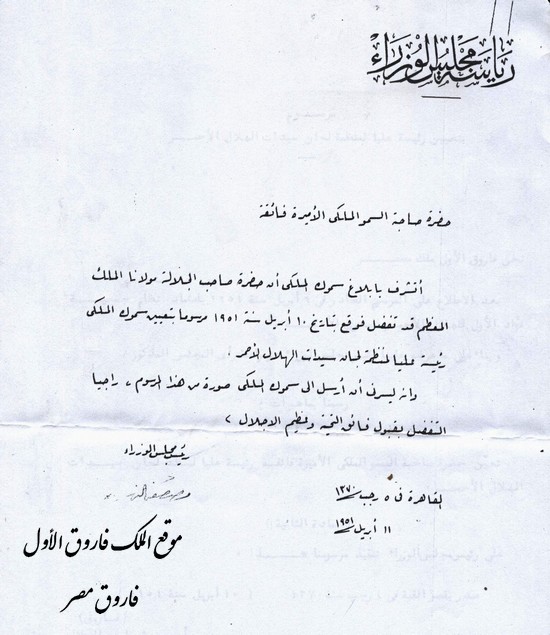 رياسة مجلس الوزراء
حضرة صاحبة السمو الملكى الأميرة فائقة
أتشرف بإبلاغ سموك الملكى أن حضرة صاحب الجلالة مولانا الملك
المعظم قد تفضل فوقع بتاريخ ١٠ أبريل سنة ١٩٥١ مرسوما بتعيين سموك الملكى
رئيسة عليا لمنظمة لجان سيدات الهلال الأحمر .
وانه ليسرنى أن أرسل الى سموك الملكى صورة من هذا المرسوم ، راجيا
التفضل بقبول فائق التحية وعظيم الاجلال ،
رئيس مجلس الوزراء
القاهرة فى ٥ رجب سنة ١٣٧٠
١١ أبريل ١٩٥١
موقع الملك فاروق الأول
فاروق مصر